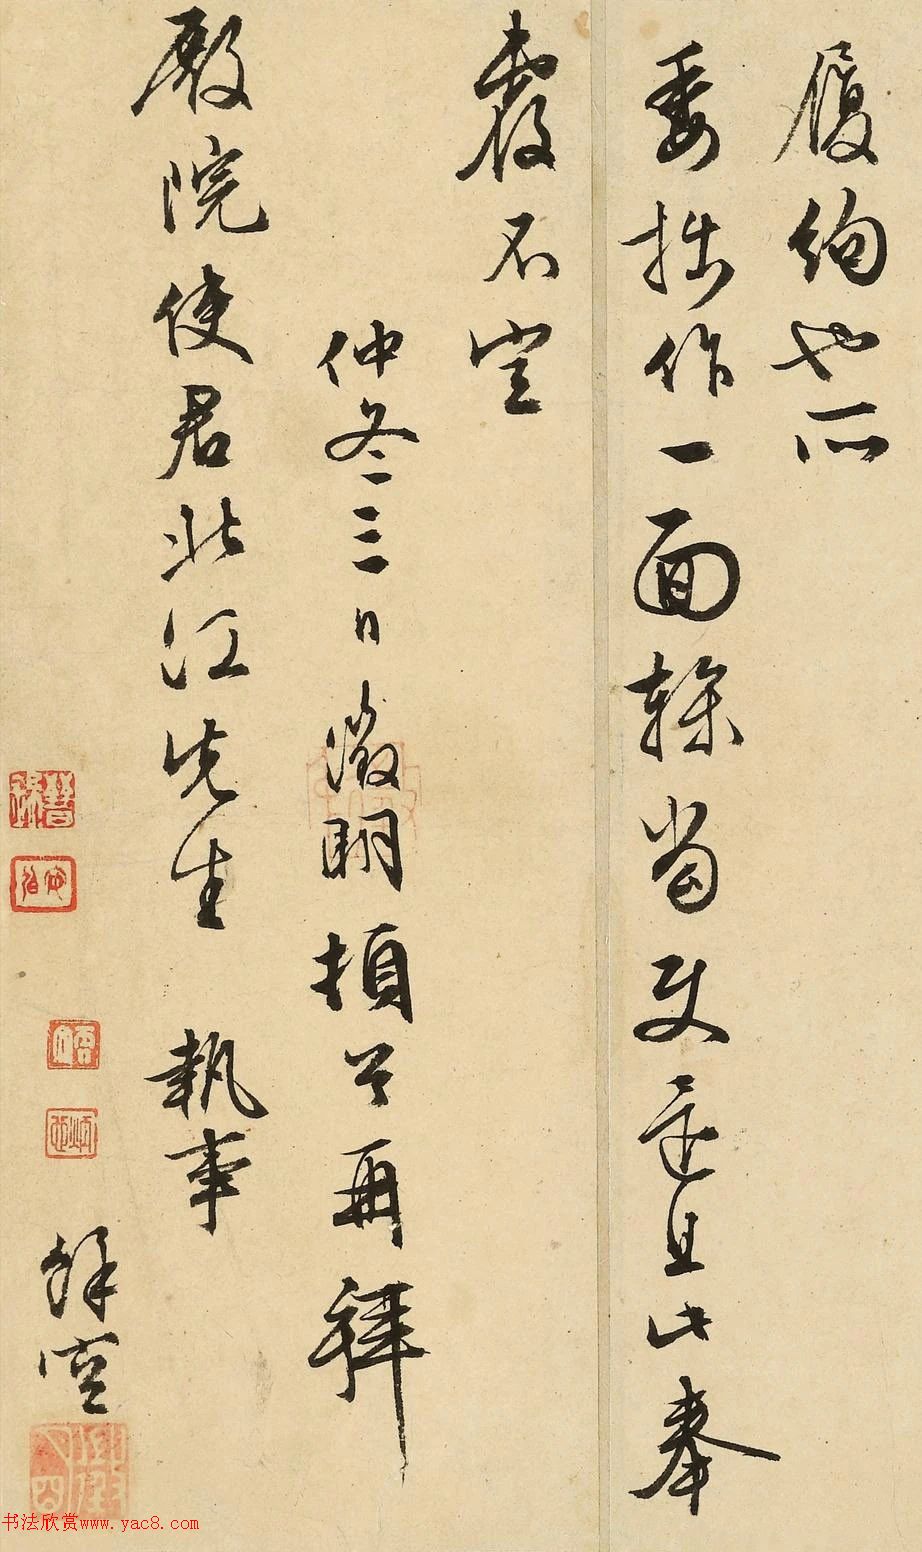 履约也所
委拙作一面轸当更逭且此奉
覆不宣
仲冬三日徵明頓首再拜
殿院使君北江先生 執事
餘空
书法欣赏www.yac8.com